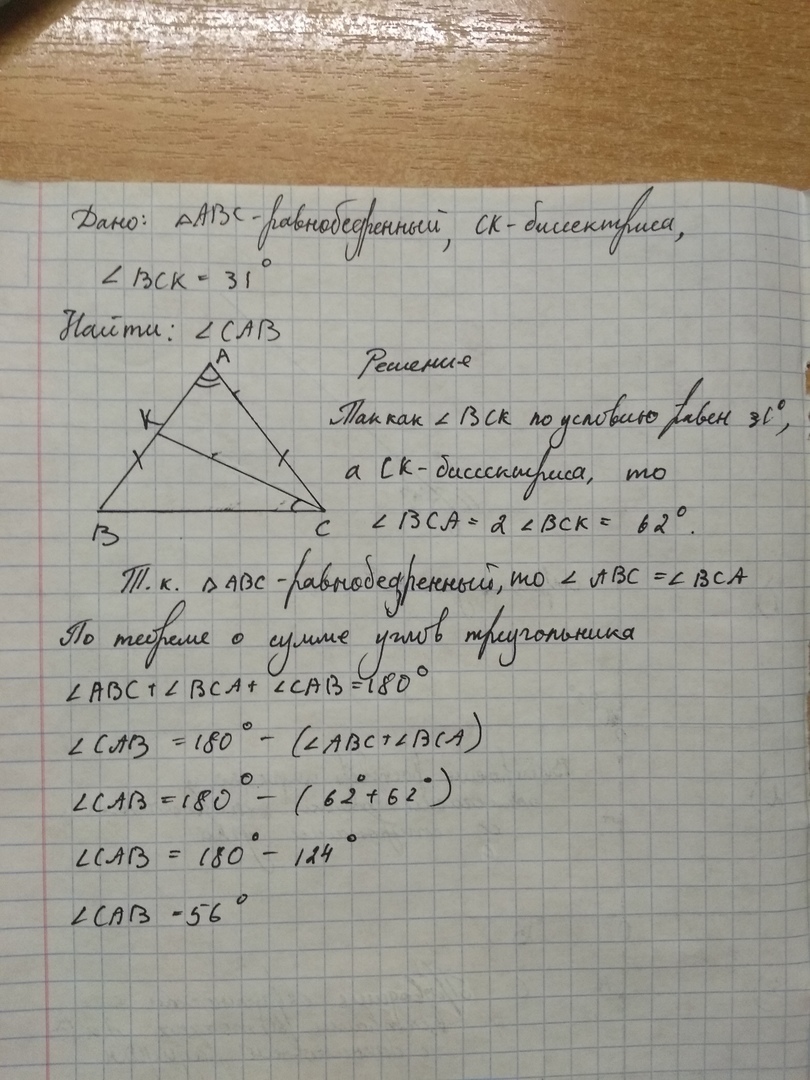 Дано: △ABC-равнобедренный, CK-биссектриса,
∠BCK = 31°
Найти: ∠CAB
A
Решение
K
Так как ∠BCK по условию равен 31°,
а CK-биссектриса, то
B
C
∠BCA = 2∠BCK = 62°.
Т.к. △ABC-равнобедренный, то ∠ABC = ∠BCA
По теореме о сумме углов треугольника
∠ABC + ∠BCA + ∠CAB = 180°
∠CAB = 180° - (∠ABC + ∠BCA)
∠CAB = 180° - (62° + 62°)
∠CAB = 180° - 124°
∠CAB = 56°